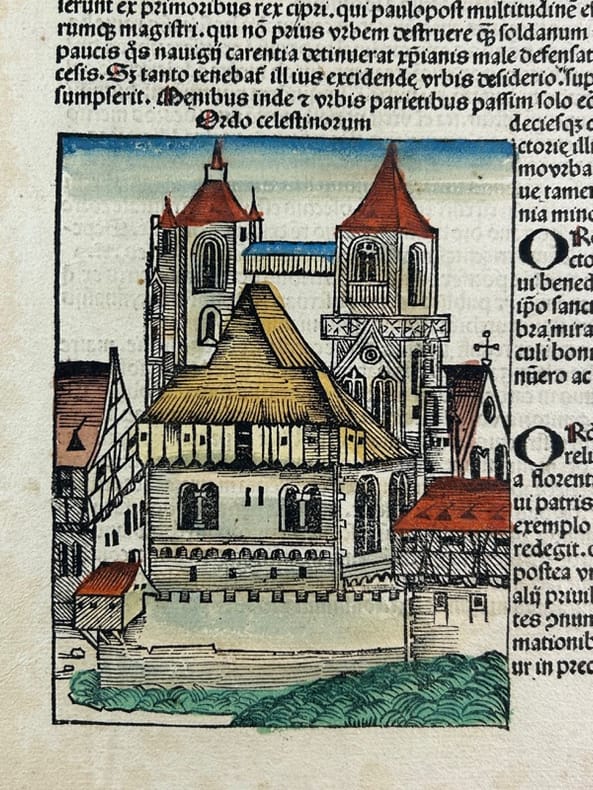 ierunt ex primoribus rex cipri. qui paulopost multitudinē
rumq̄ magistri. qui nō prius vrbem destruere q̄ȝ soldanum
paucis q̄s nauigij carentia detinuerat xp̄ianis male defensat
cesis. Sȝ tanto tenebat̄ ill ius excidende vrbis desiderio.
sumpserit. Menibus inde ⁊ vrbis parietibus passim solo
Ordo celestinorum
deciesqȝ
ctorie
movrba
ue tamen
nia mino
O
cto
ui bened
ip̄o sanct
bra mira
culi boni
nūero ac
O
reli
a florent
ui patris
exemplo
redegit.
postea
alij priuil
tes ꝯnum
mationib
ur in prec